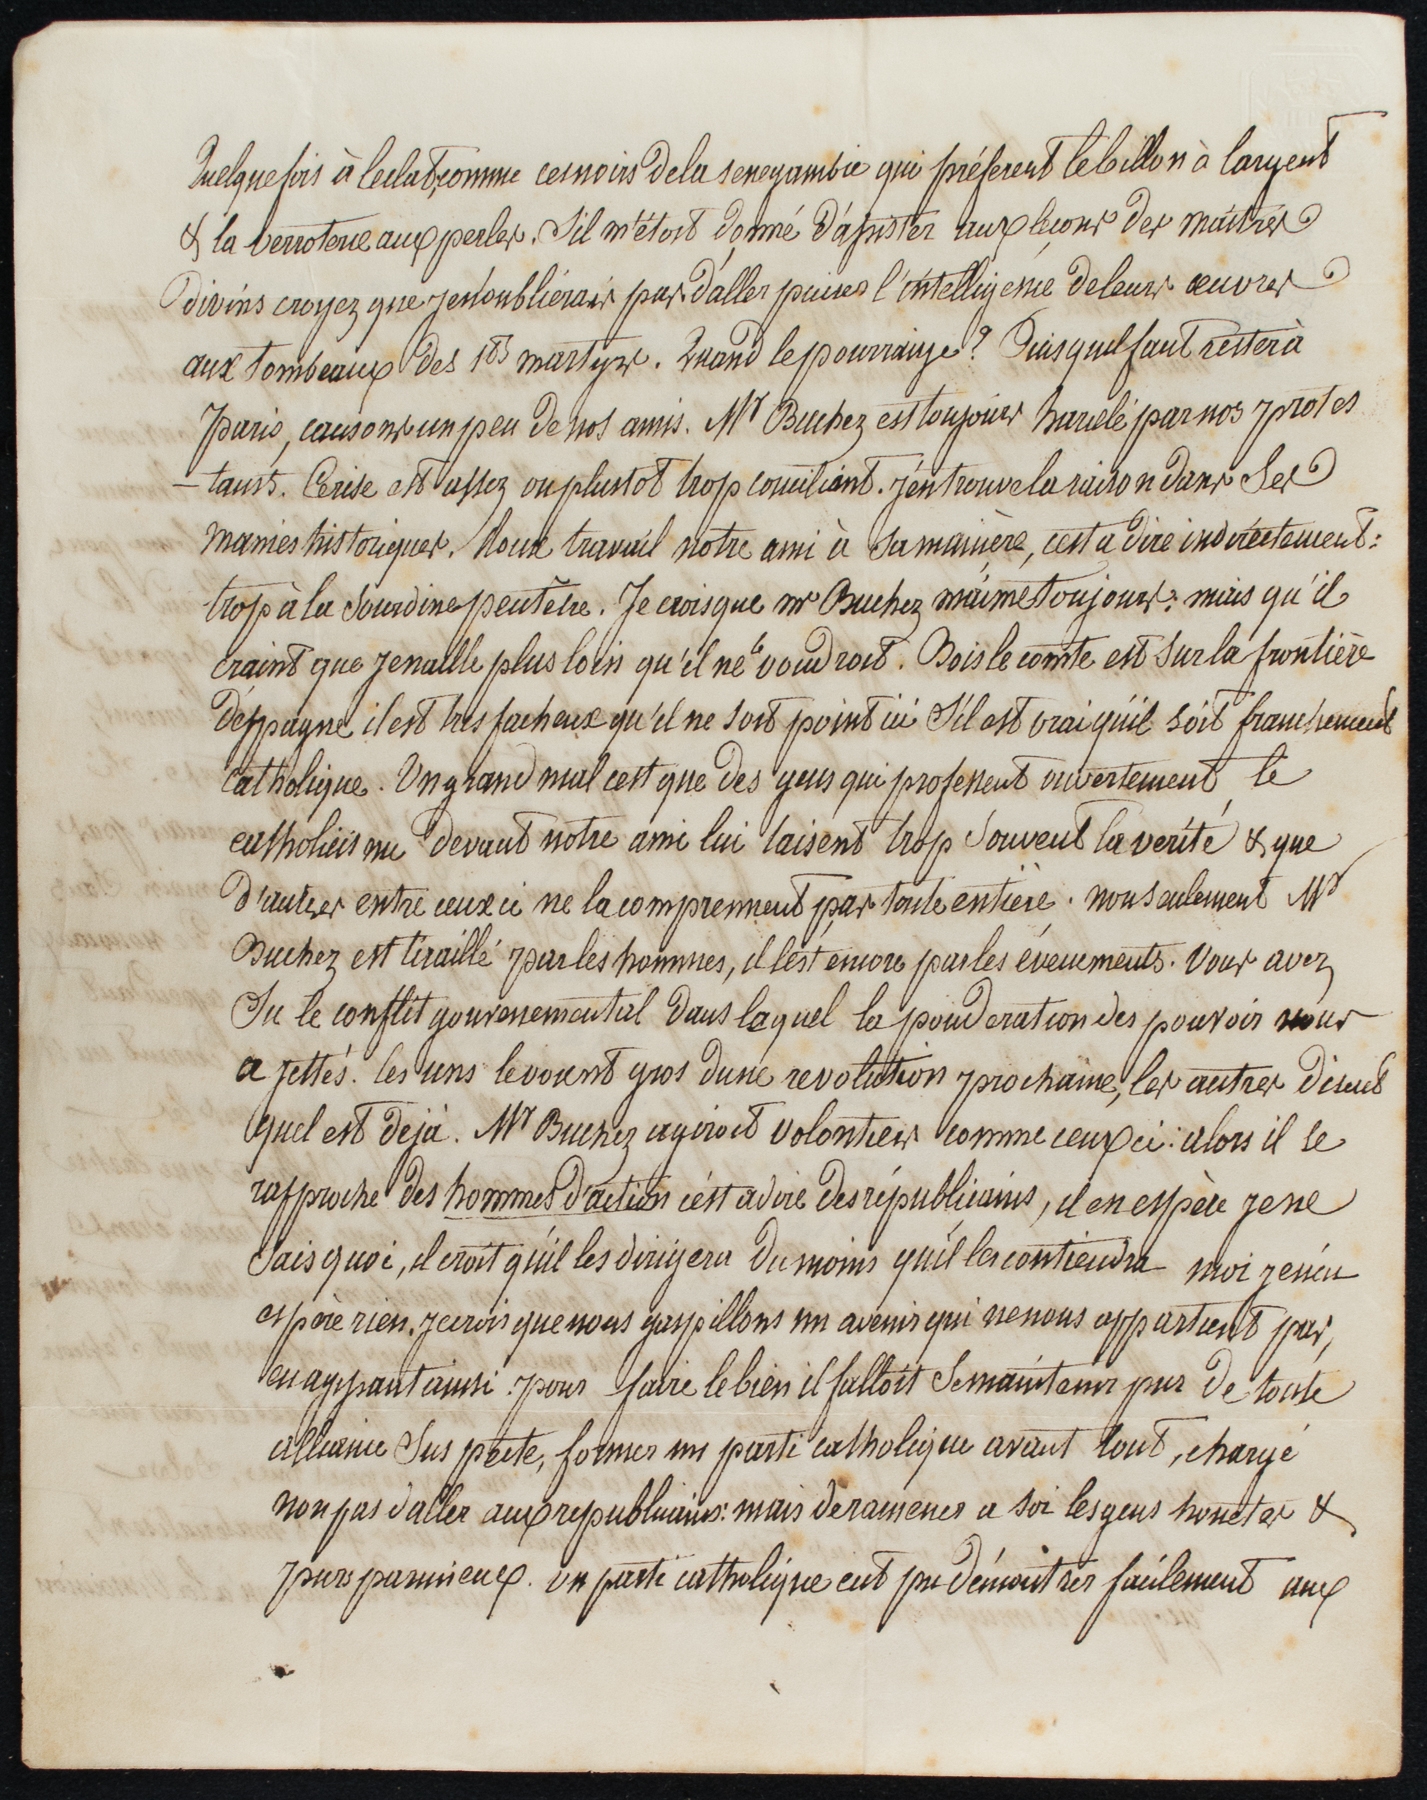 Quelquefois à leclat, comme ces noirs de la senegambie qui préferent le billon à largent
& la verroterie aux perles. S'il m'étoit donné d'assister aux leçons des maîtres
divins croyez que je n'oublierais pas d'aller puiser l'intelligence de leurs œuvres
aux tombeaux des 1ers martyrs. Quand le pourraije? Puisquil faut rester à
Paris, causons un peu de nos amis. Mr Buchez est toujours harcelé par nos protes
-tants. Cerise est assez ou plustot trop conciliant. j'en trouve la raison dans ses
manies historiques. Roux travail notre ami à sa manière, cest a dire indirectement:
trop à la sourdine peutêtre. Je crois que mr Buchez m'aime toujours: mais qu'il
craint que jenaille plus loin qu'il ne le voudroit. Bois le comte est sur la frontière
d'espagne il est tres facheux qu'il ne soit point ici s'il est vrai qu'il soit franchement
catholique. Un grand mal cest que des gens qui professent ouvertement le
catholicisme devant notre ami lui taisent trop souvent la verité & que
d'autres entre ceux ci ne la comprennent pas toute entière. non seulement Mr
Buchez est tiraillé par les hommes, il l'est encore par les évenements. Vous avez
su le conflit gouvernemental dans laquel la pouderation des pouvoirs nous
a jettés. les uns levoient gros dune revolution prochaine, les autres disent
quel est dejà. Mr Buchez agiroit volontiers comme ceux ci: alors il se
rapproche des hommes d'action c'est adire des républicains, il en espère jene
sais quoi, il croit qu'il les dirigera du moins qu'il les contiendra moi jen'en
espère rien. jecrois que nous gaspillons un avenir qui ne nous appartient pas,
en agissant ainsi. pour faire le bien il falloit se maintenir pur de toute
alliance suspecte, former un parti catholique avant tout, chargé
non pas d'aller aux republicains: mais de ramener a soi les gens honetes &
purs parmi eux. un parti catholique eut pu démontrer facilement aux